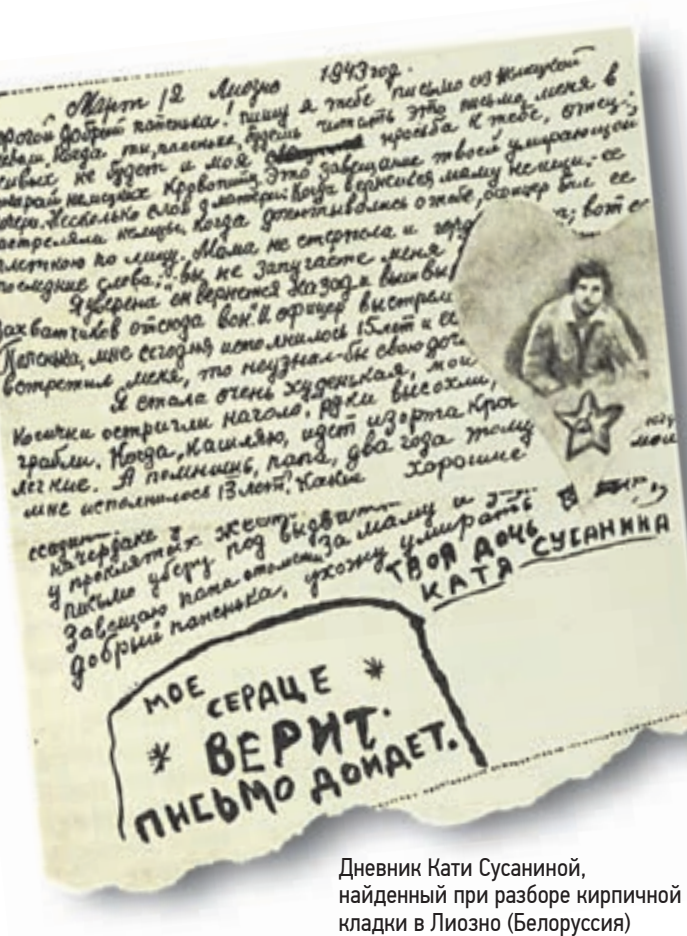 Март 12 Лиозно 1943 год.
Дорогой добрый папенька! пишу я тебе письмо из немецкой
неволи. Когда ты, папенька, будешь читать это письмо, меня в
живых не будет и моя просьба к тебе, отец:
покарай немецких кровопийц. Это завещание твоей умирающей
дочери. Несколько слов о матери. Когда вернешься маму не ищи. ее
расстреляли немцы. Когда допытывались о тебе, офицер бил ее
плеткою по лицу. Мама не стерпела и вот ее
последние слова: „вы не запугаете меня
Я уверена он вернется назад и
захватчиков отсюда вон. И офицер выстрел
Папенька, мне сегодня исполнилось 15 лет и
встретил меня, то неузнал-бы свою доч
Я стала очень худенькая, мои
косички остригли наголо, руки высохли,
грабли. Когда кашляю, идет изорта кро
легкие. А помнишь, папа, два года тому
мне исполнилось 13 лет? Какие хорошие мои
на чердаке
у проклятых
письмо уберу под
Завещаю папа отомсти за маму и
добрый папенька, ухожу умирать
ТВОЯ ДОЧЬ
КАТЯ СУСАНИНА
МОЕ
СЕРДЦЕ
ВЕРИТ.
ПИСЬМО ДОЙДЕТ.
Дневник Кати Сусаниной,
найденный при разборе кирпичной
кладки в Лиозно (Белоруссия)